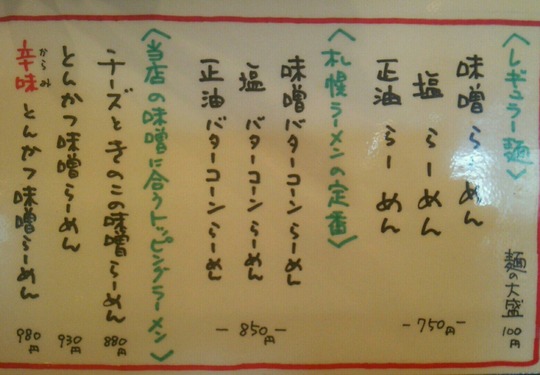 〈レギュラー麺〉
麺の大盛 100円
味噌らーめん
塩らーめん
正油らーめん
-750円-
〈札幌ラーメンの定番〉
味噌バターコーンらーめん
塩バターコーンらーめん
正油バターコーンらーめん
-850円-
〈当店の味噌に合うトッピングラーメン〉
チーズときのこの味噌らーめん 880円
とんかつ味噌らーめん 930円
からみ
辛味とんかつ味噌らーめん 980円